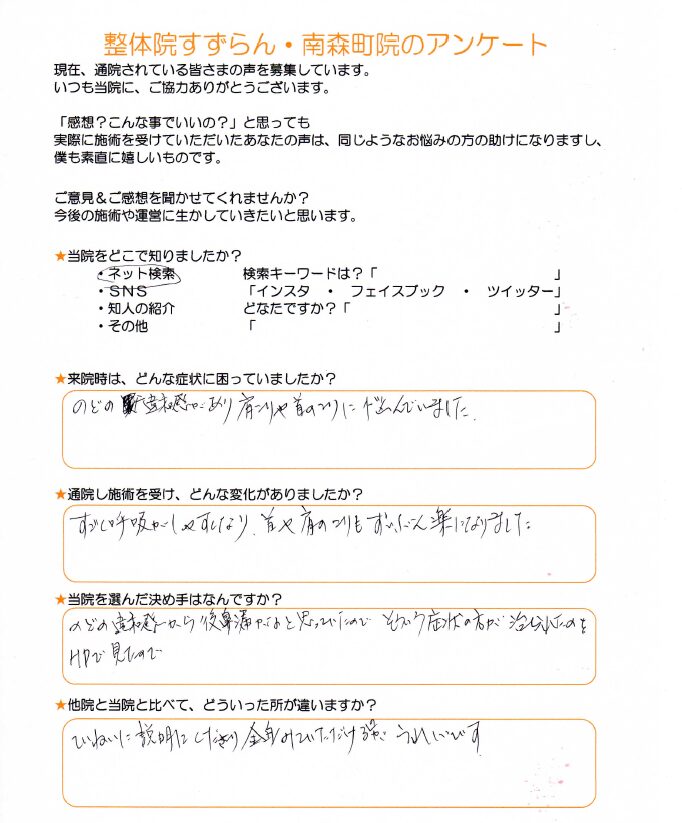 整体院すずらん・南森町院のアンケート
現在、通院されている皆さまの声を募集しています。
いつも当院に、ご協力ありがとうございます。
「感想?こんな事でいいの?」と思っても
実際に施術を受けていただいたあなたの声は、同じようなお悩みの方の助けになりますし、
僕も素直に嬉しいものです。
ご意見&ご感想を聞かせてくれませんか?
今後の施術や運営に生かしていきたいと思います。
★当院をどこで知りましたか?
・ネット検索 検索キーワードは?「 」
・SNS 「インスタ ・ フェイスブック ・ ツイッター」
・知人の紹介 どなたですか?「 」
・その他 「 」
★来院時は、どんな症状に困っていましたか?
のどの違和感があり肩こりや首のこりに悩んでいました.
★通院し施術を受け、どんな変化がありましたか?
すごく呼吸がしやすくなり、首や肩のこりもずいぶん楽になりました
★当院を選んだ決め手はなんですか?
のどの違和感から後鼻漏かなと思っていたので そういう症状の方が治られたのを
HPで見たので
★他院と当院と比べて、どういった所が違いますか?
ていねいに説明 全身みていただける うれしいです